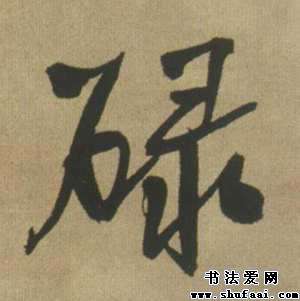 碌
书法爱网
www.shufaai.com